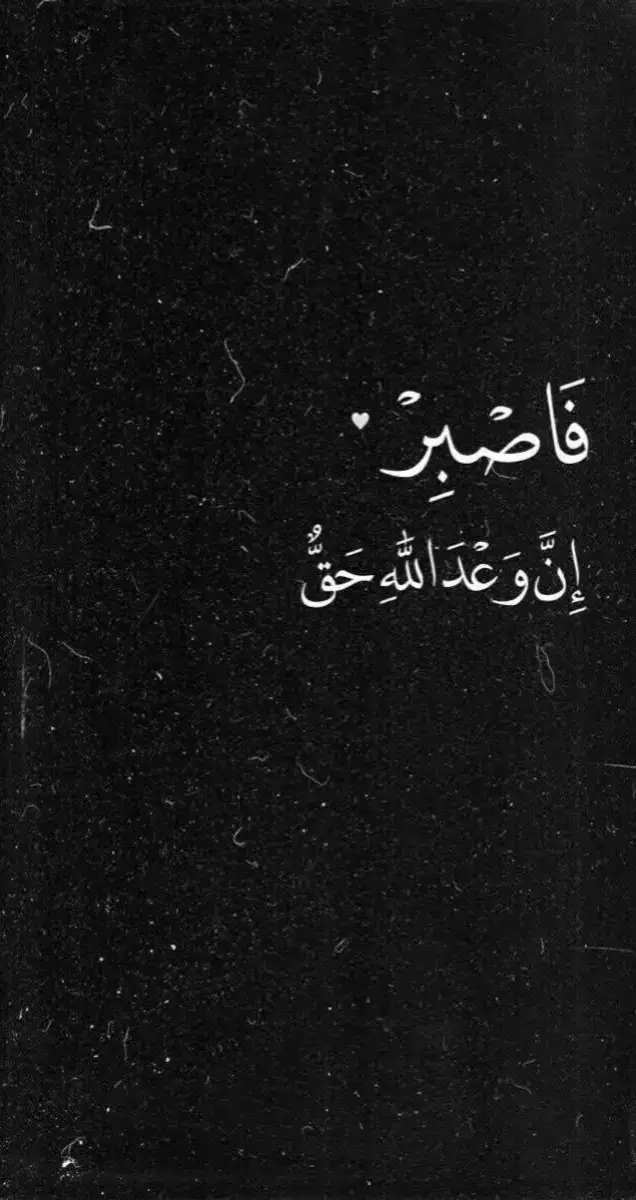 فَاصْبِرْ ♥
إِنَّ وَعْدَ اللَّهِ حَقٌّ